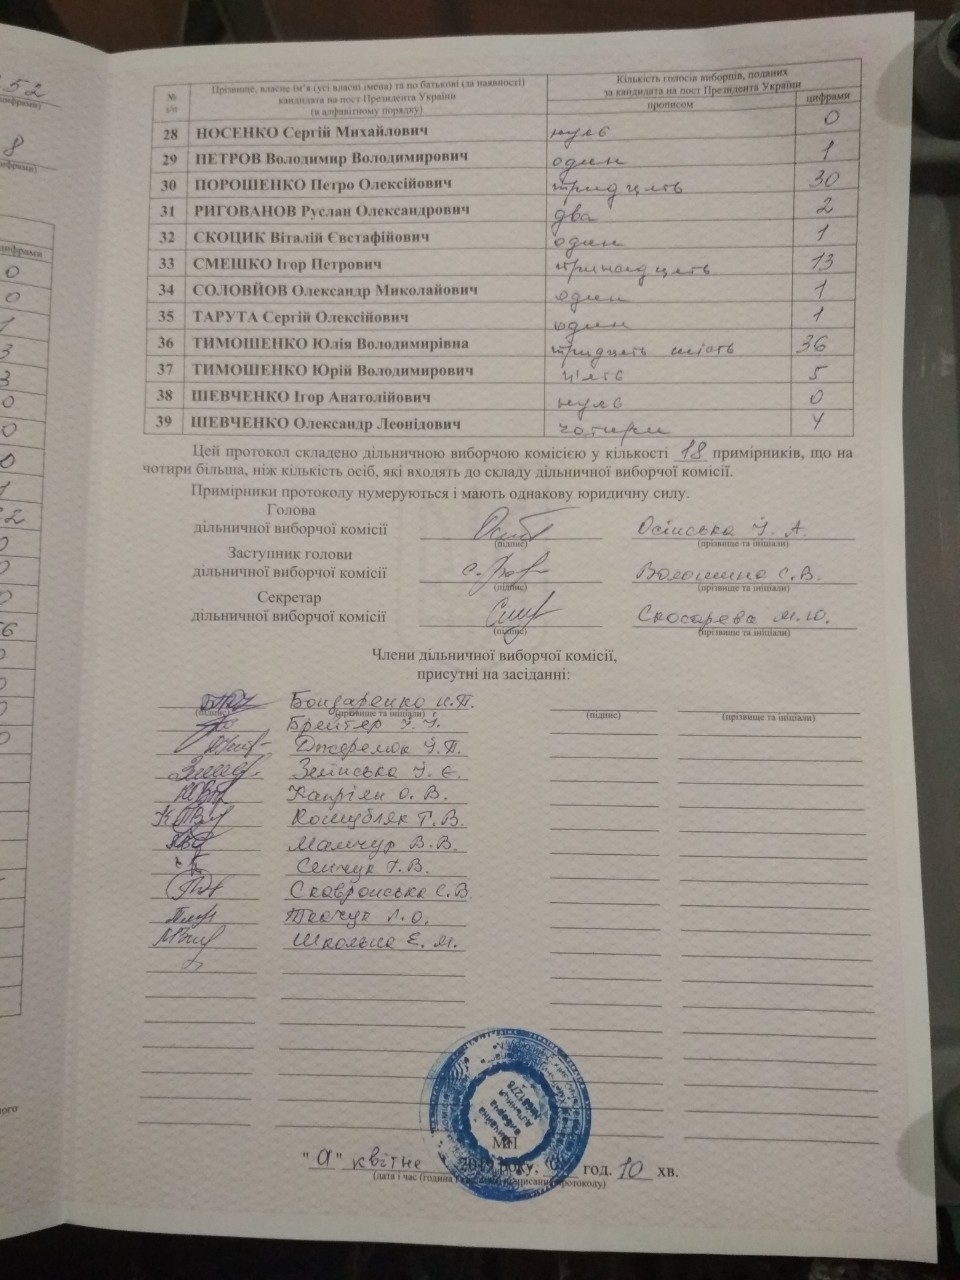 52
(цифрами)
8
(цифрами)
цифрами
0
0
1
3
3
0
0
0
1
0
0
0
0
0
0
№ з/п
Прізвище, власне ім'я (усі власні імена) та по батькові (за наявності)
кандидата на пост Президента України
(в алфавітному порядку)
Кількість голосів виборців, поданих
за кандидата на пост Президента України
прописом цифрами
28 НОСЕНКО Сергій Михайлович нуль 0
29 ПЕТРОВ Володимир Володимирович один 1
30 ПОРОШЕНКО Петро Олексійович тридцять 30
31 РИГОВАНОВ Руслан Олександрович два 2
32 СКОЦИК Віталій Євстафійович один 1
33 СМЕШКО Ігор Петрович тринадцять 13
34 СОЛОВЙОВ Олександр Миколайович один 1
35 ТАРУТА Сергій Олексійович один 1
36 ТИМОШЕНКО Юлія Володимирівна тридцять шість 36
37 ТИМОШЕНКО Юрій Володимирович п'ять 5
38 ШЕВЧЕНКО Ігор Анатолійович нуль 0
39 ШЕВЧЕНКО Олександр Леонідович чотири 4
Цей протокол складено дільничною виборчою комісією у кількості 18 примірників, що на
чотири більша, ніж кількість осіб, які входять до складу дільничної виборчої комісії.
Примірники протоколу нумеруються і мають однакову юридичну силу.
Голова
дільничної виборчої комісії Осінська І. А.
(підпис) (прізвище та ініціали)
Заступник голови
дільничної виборчої комісії Волошина С.В.
(підпис) (прізвище та ініціали)
Секретар
дільничної виборчої комісії Скосарева М.Ю.
(підпис) (прізвище та ініціали)
Члени дільничної виборчої комісії,
присутні на засіданні:
Бондаренко Н.П.
(підпис) (прізвище та ініціали) (підпис) (прізвище та ініціали)
Брейтер І. І.
І.П.
Зелінська І. Є.
Капріян О. В.
Коцубляк Г. В.
Мамчур В.В.
Сенчук Т.В.
Скавронська С.В.
Ткачук Л.О.
Школьна Є. М.
МП
"01" квітня 2019 року, год. 10 хв.
(дата і час (година підписання протоколу)